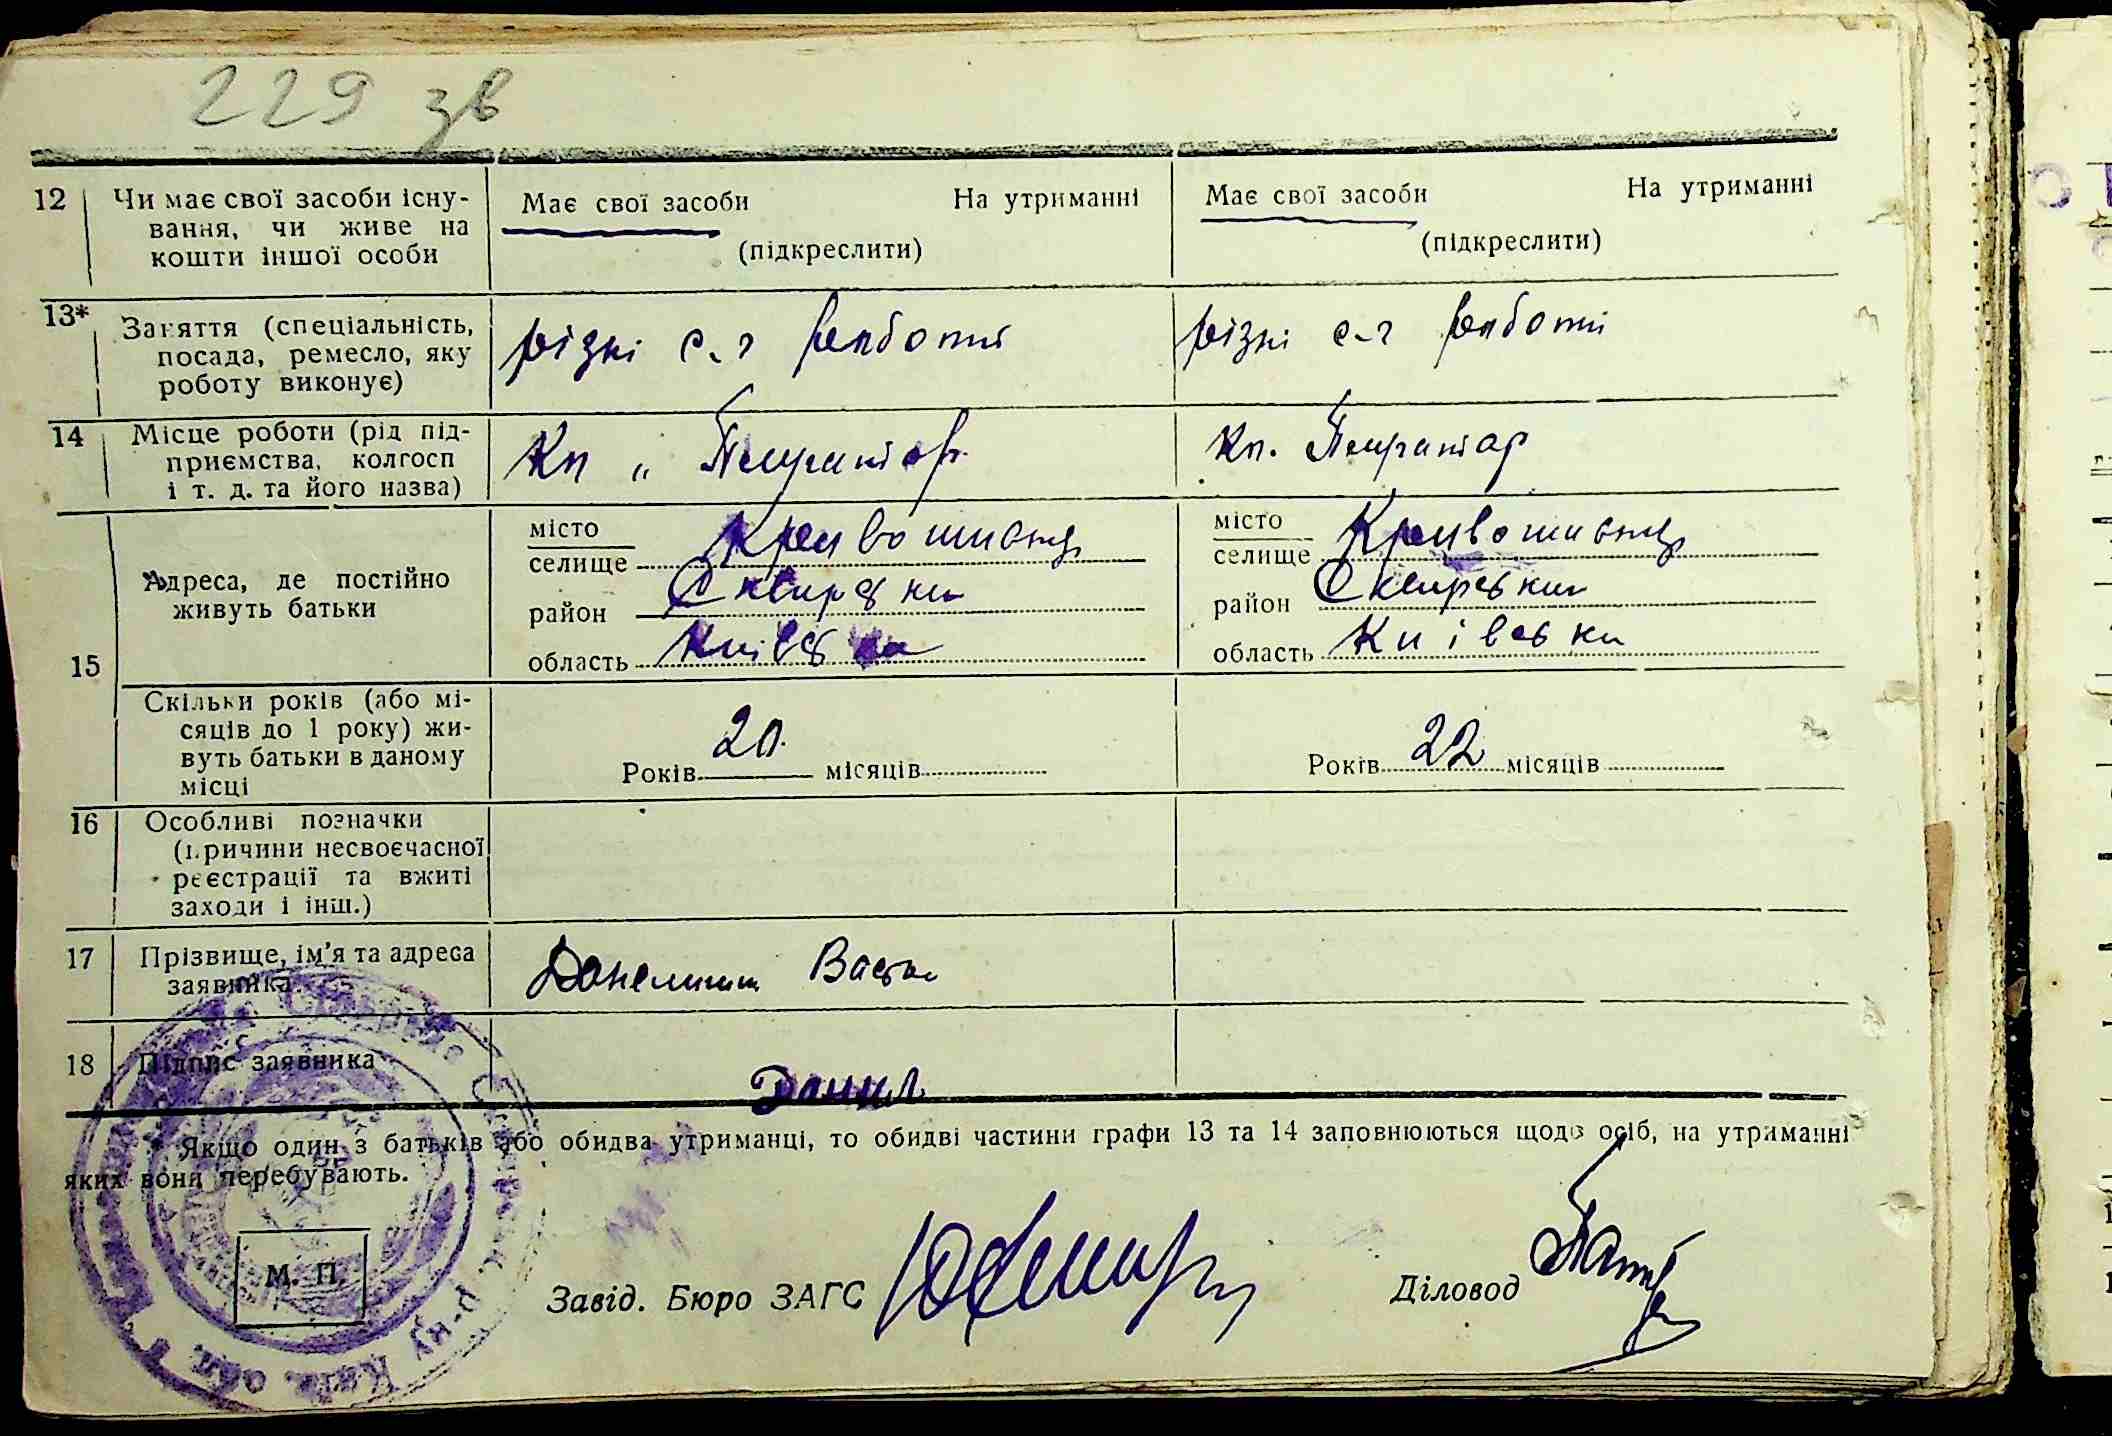 229 зв
12 Чи має свої засоби існу-
вання, чи живе на
кошти іншої особи
Має свої засоби На утриманні
(підкреслити)
Має свої засоби На утриманні
(підкреслити)
13* Заняття (спеціальність,
посада, ремесло, яку
роботу виконує)
різні с-г роботи
різні с-г роботи
14 Місце роботи (рід під-
приємства, колгосп
і т. д. та його назва)
Кп
Кп.
15 Адреса, де постійно
живуть батьки
місто
селище Кривошиївці
район Сквирськи
область Київська
місто
селище Кривошиївці
район Сквирськи
область Київськи
Скільки років (або мі-
сяців до 1 року) жи-
вуть батьки в даному
місці
Років 20. місяців
Років 22 місяців
16 Особливі позначки
(причини несвоєчасної
реєстрації та вжиті
заходи і інш.)
17 Прізвище, ім'я та адреса
заявника.
18 Підпис заявника
* Якщо один з батьків або обидва утриманці, то обидві частини графи 13 та 14 заповнюються щодо осіб, на утриманні
яких вони перебувають.
М. П.
Завід. Бюро ЗАГС
Діловод